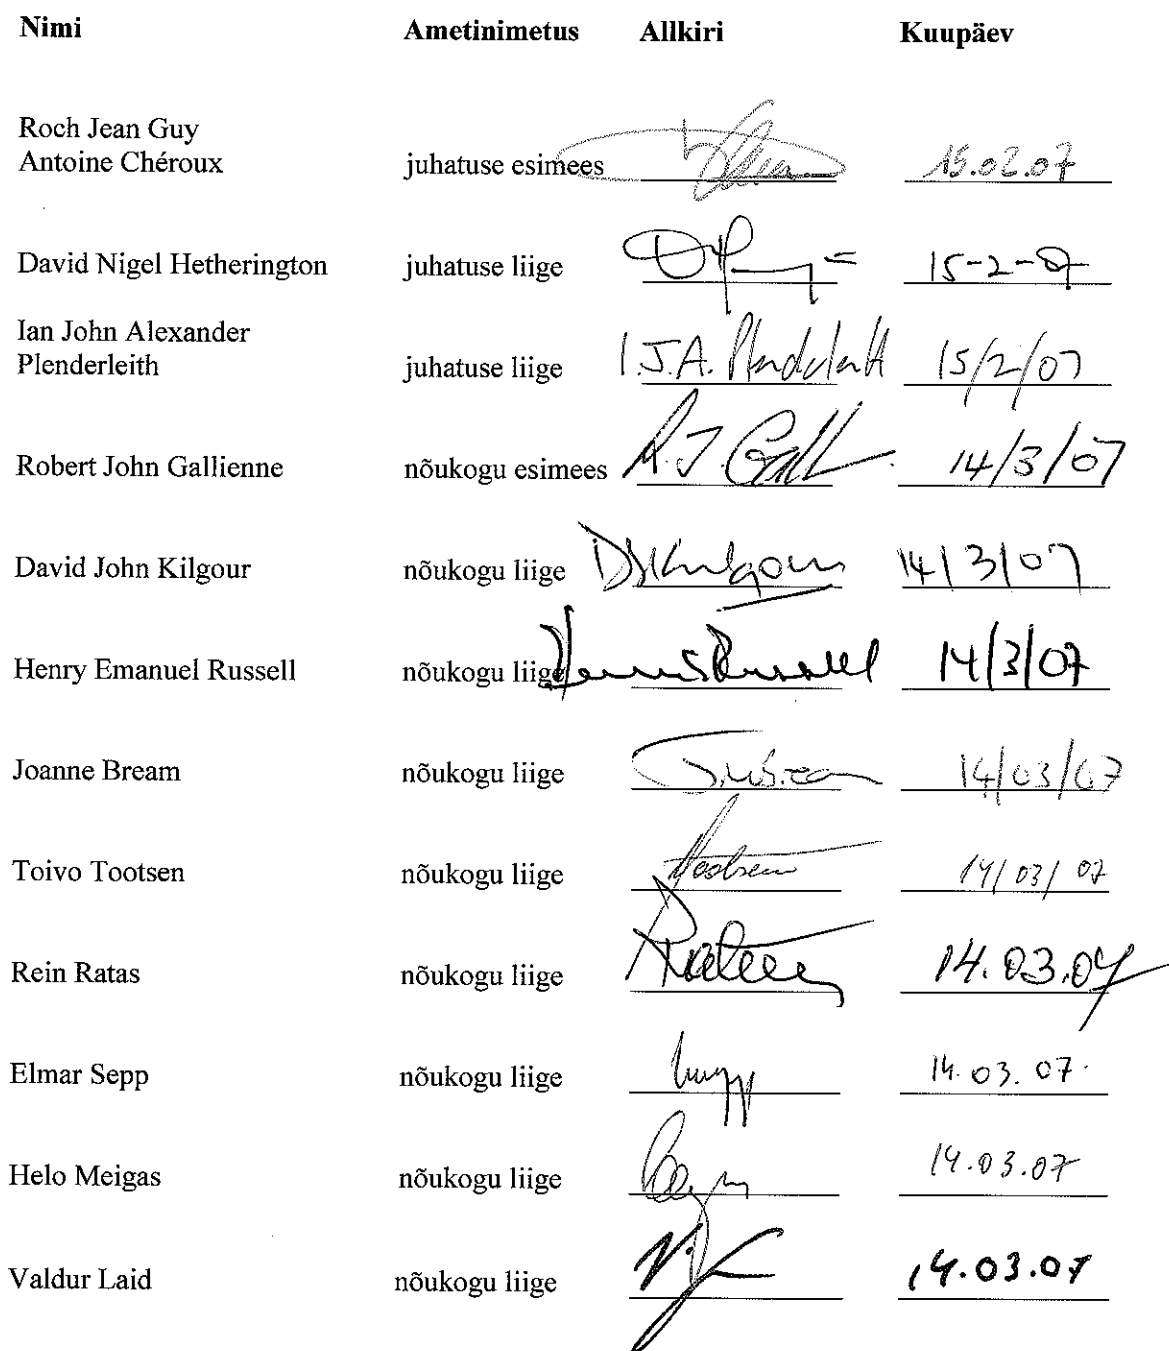 Nimi Ametinimetus Allkiri Kuupäev
Roch Jean Guy
Antoine Chéroux juhatuse esimees 15.02.07
David Nigel Hetherington juhatuse liige 15-2-07
Ian John Alexander
Plenderleith juhatuse liige I.J.A. Plenderleith 15/2/07
Robert John Gallienne nõukogu esimees R.J. Gall 14/3/07
David John Kilgour nõukogu liige DJKilgour 14/3/07
Henry Emanuel Russell nõukogu liige Russell 14/3/07
Joanne Bream nõukogu liige 14/03/07
Toivo Tootsen nõukogu liige Tootsen 14/03/07
Rein Ratas nõukogu liige 14.03.07
Elmar Sepp nõukogu liige 14.03.07.
Helo Meigas nõukogu liige 14.03.07
Valdur Laid nõukogu liige 14.03.07